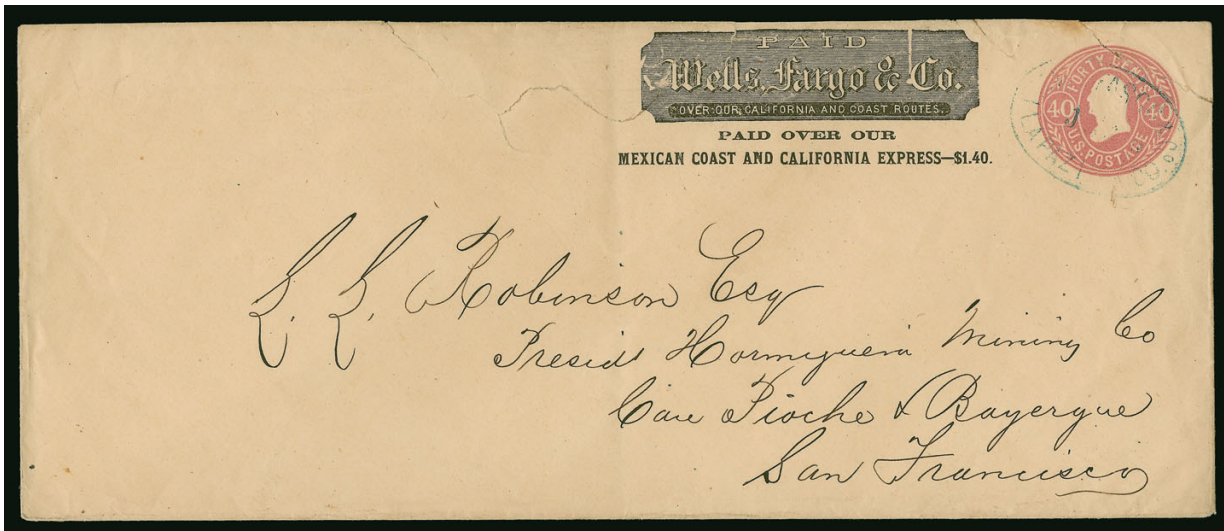 PAID
Wells, Fargo & Co.
OVER OUR CALIFORNIA AND COAST ROUTES.
PAID OVER OUR
MEXICAN COAST AND CALIFORNIA EXPRESS—$1.40.
FORTY CENTS
40 40
U.S. POSTAGE
LA PAZ
& CO.
L. L. Robinson Esq
Presidt Hormiguera Mining Co
Care Pioche & Bayerque
San Francisco